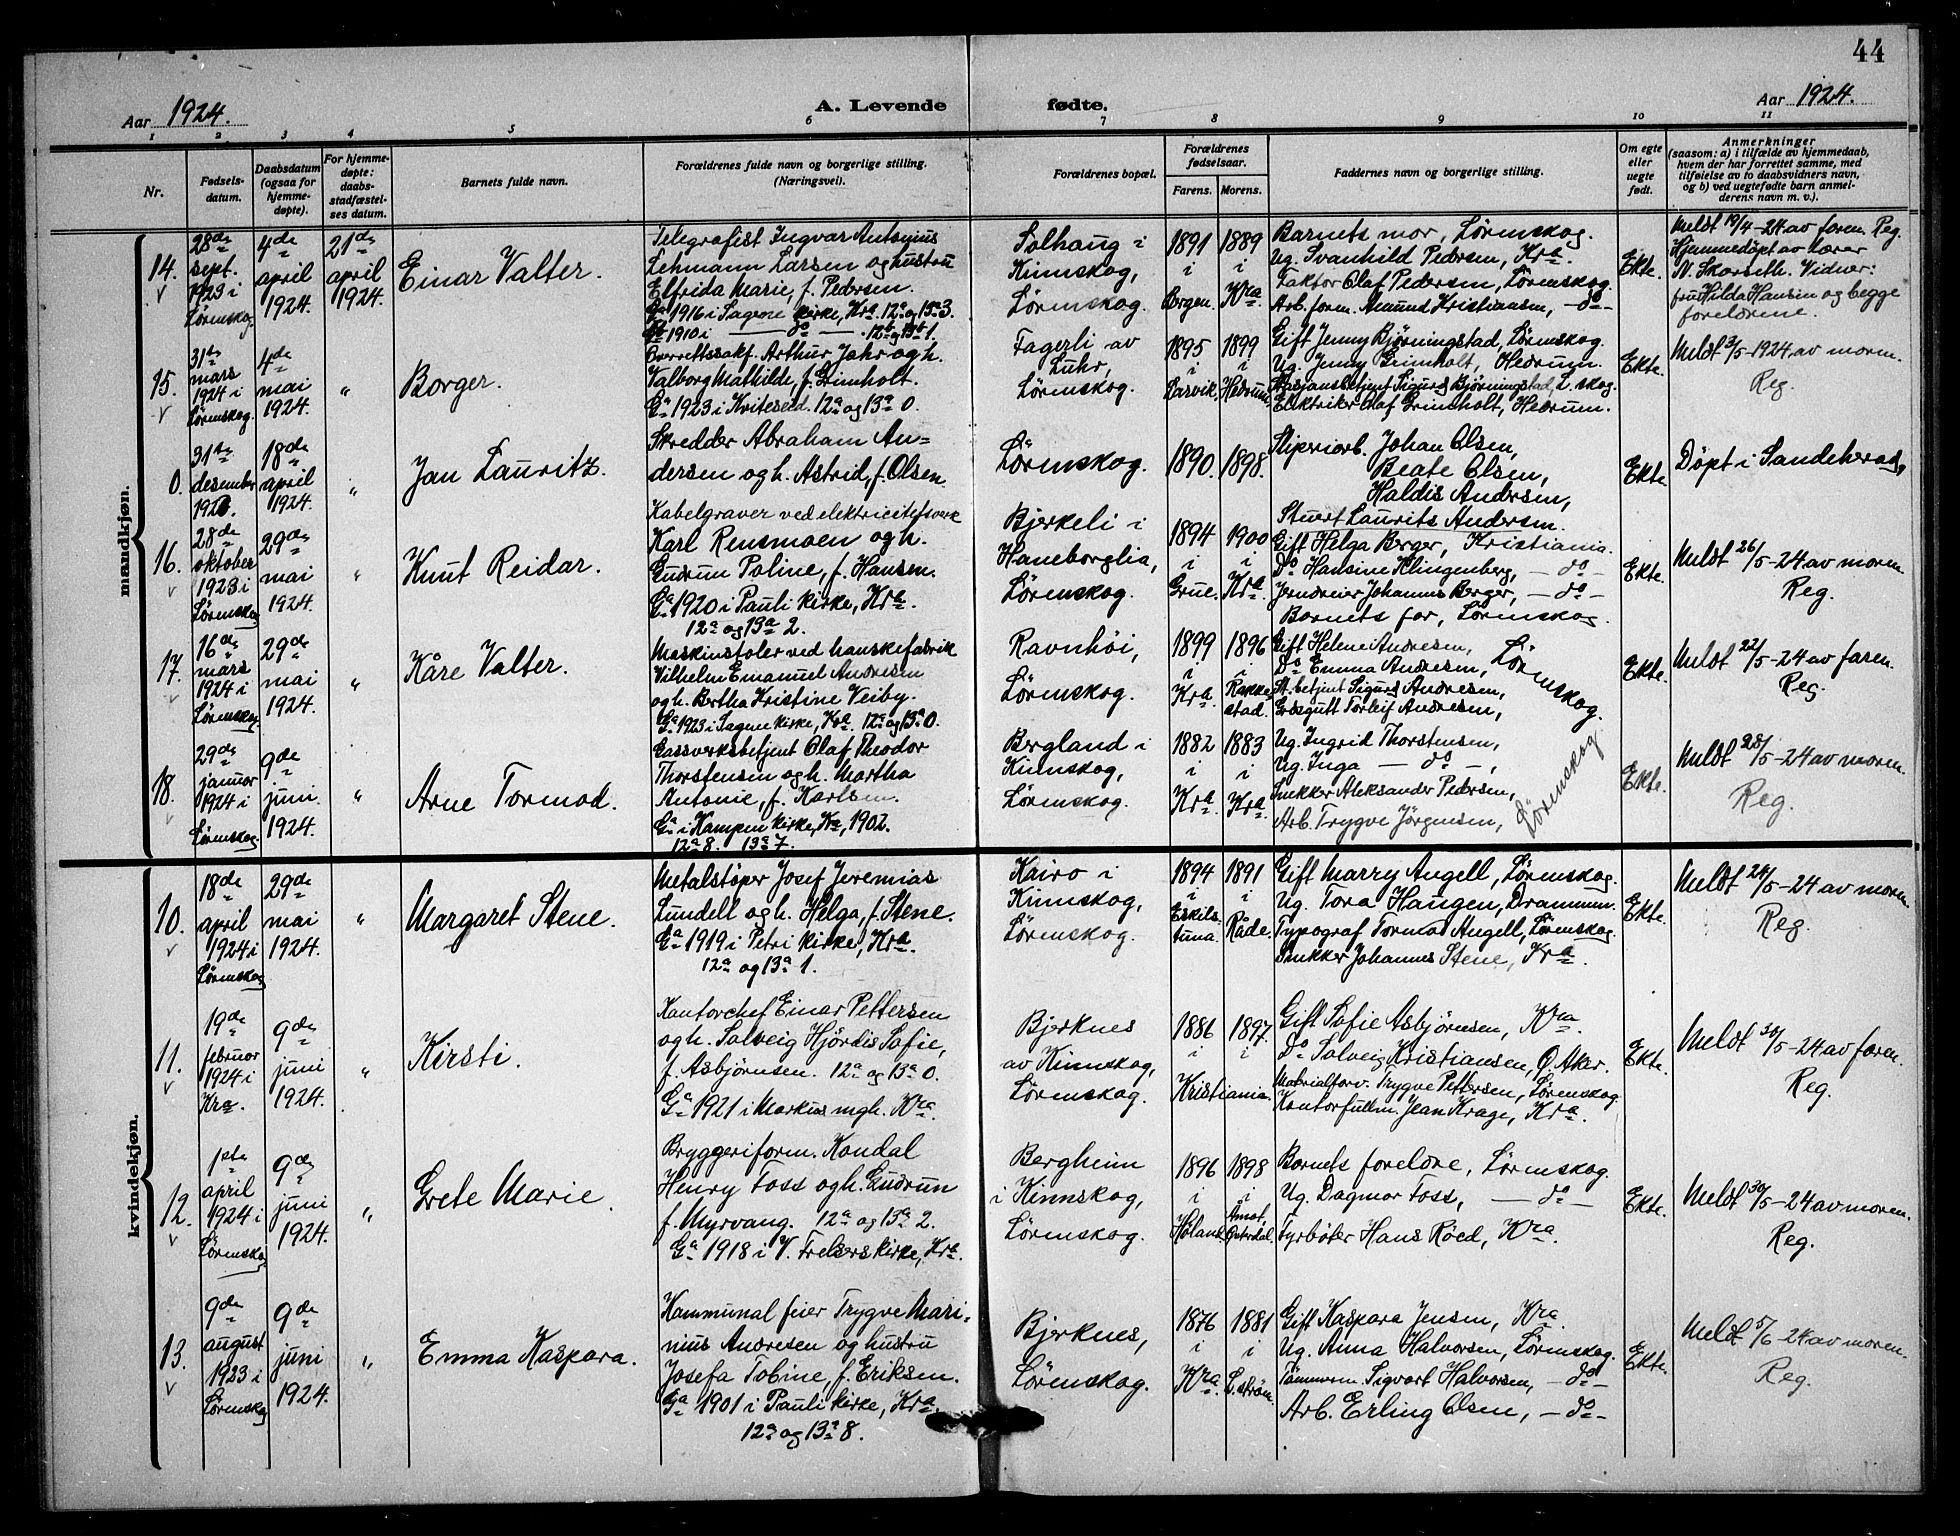 44
Aar 1924.
A. Levende fødte.
Aar 1924.
1 2 3 4 5 6 7 8 9 10 11
Nr.
Fødsels-
datum.
Daabsdatum
(ogsaa for
hjemme-
døpte).
For hjemme-
døpte:
daabs-
stadfæstel-
ses datum.
Barnets fulde navn.
Forældrenes fulde navn og borgerlige stilling.
(Næringsvei).
Forældrenes bopæl.
Forældrenes
fødselsaar.
Farens. Morens.
Faddernes navn og borgerlige stilling.
Om egte
eller
uegte
født.
Anmerkninger
(saasom: a) i tilfælde av hjemmedaab,
hvem der har forrettet samme, med
tilføielse av to daabsvidners navn,
og b) ved uegtefødte barn anmel-
derens navn m. v.).
mandkjøn.
14.
28de
sept.
1923 i
Lørenskog
4de
april
1924.
21de
april
1924.
Einar Valter.
Telegrafist Ingvar Antonius
Lehmann Larsen og hustru
Elfrida Marie, f. Pedersen.
Ga 1916 i Sagene kirke, Kra. 12a og 13a 3.
Gb 1910 i — do — . 12b og 13b 1.
Solhaug i
Kinnskog,
Lørenskog.
1891
i
Bergen.
1889
i
Kra
Barnets mor, Lørenskog.
Ug. Svanhild Pedersen, Kra.
Faktor Olaf Pedersen, Lørenskog.
Arb. form. Amund Kristiansen, — do —
Ekte.
Meldt 19/4-24 av faren. Reg.
Hjemmedøpt av lærer
N. Skorseth. Vidner:
fru Hilda Hansen og begge
foreldrene.
15.
31te
mars
1924 i
Lørenskog.
4de
mai
1924.
"
Borger.
Overrettssakf. Arthur Jahr og h.
Valborg Mathilde, f. Grimholt.
Ga 1923 i Kviteseid. 12a og 13a 0.
Fagerli av
Luhr,
Lørenskog.
1895
i
Larvik.
1899
i
Hedrum.
Gift Jenny Bjørningstad, Lørenskog.
Ug. Jenny Grimholt, Hedrum.
Sigurd Bjørningstad, L.skog.
Elektriker Olaf Grimholt, Hedrum.
Ekte.
Meldt 3/5-1924 av moren.
Reg.
0.
31te
desember
18de
april
1924.
"
Jan Lauritz.
Skredder Abraham An-
dersen og h. Astrid, f. Olsen.
Lørenskog.
1890.
1898.
Sliperiarb. Johan Olsen,
Beate Olsen,
Haldis Andersen,
Stuert Laurits Andersen.
Ekte.
Døpt i Sandeherad,
16.
28de
oktober
1923 i
Lørenskog
29de
mai
1924.
"
Knut Reidar.
Kabelgraver ved elektricitetsverk
Karl Rensmoen og h.
Gudrun Poline, f. Hansen.
Ga 1920 i Pauli kirke, Kra.
12a og 13a 2.
Bjerkeli i
Haneborglia,
Lørenskog.
1894
i
Grue.
1900
i
Kra.
Gift Helga Berger, Kristiania.
Do Hansine Klingenberg, — do —
Jerndreier Johannes Berger, — do —
Barnets far, Lørenskog.
Ekte.
Meldt 26/5-24 av moren.
Reg.
17.
16de
mars
1924 i
Lørenskog
29de
mai
1924.
"
Kåre Valter.
Maskinstoler ved hanskefabrik
Vilhelm Emanuel Andresen
og h. Bertha Kristine Veiby.
Ga 1923 i Sagene kirke, Kra. 12a og 13a 0.
Ravnhöi,
Lørenskog.
1899
i
Kra.
1896
i
Rakke-
stad.
Gift Helene Andresen,
Do Emma Andresen,
St. betjent Sigurd Andresen,
Grdsgutt Torleif Andresen,
Lørenskog.
Ekte.
Meldt 22/5-24 av faren.
Reg.
18.
29de
januar
1924 i
Lørenskog.
9de
juni
1924.
"
Arne Tormod.
Gassverksbetjent Olaf Theodor
Thorstensen og h. Martha
Antonie, f. Karlsen.
Ga i Kampen kirke, Kra, 1902.
12a 8. 13a 7.
Bergland i
Kinnskog,
Lørenskog.
1882
i
Kra
1883
i
Kra.
Ug. Ingrid Thorstensen,
Ug. Inga — do —,
Snekker Aleksander Pedersen,
Arb. Trygve Jörgensen,
Lørenskog
Ekte.
Meldt 28/5-24 av moren.
Reg.
kvindekjøn.
10.
18de
april
1924 i
Lørenskog
29de
mai
1924.
"
Margaret Stene.
Metalstøper Josef Jeremias
Lundell og h. Helga, f. Stene.
Ga 1919 i Petri kirke, Kra.
12a og 13a 1.
Kairo i
Kinnskog,
Lørenskog.
1894
i
Eskils-
tuna.
1891
i
Råde.
Gift Marry Angell, Lørenskog.
Ug. Tora Haugen, Drammen.
Typograf Tormod Angell, Lørenskog.
Snekker Johannes Stene, Kra.
Ekte.
Meldt 24/5-24 av moren.
Reg.
11.
19de
februar
1924 i
Kra.
9de
juni
1924.
"
Kirsti.
Kontorchef Einar Pettersen
og h. Solveig Hjördis Sofie,
f. Asbjörnsen. 12a og 13a 0.
Ga 1921 i Markus mgh. Kra.
Bjerknes
av Kinnskog,
Lørenskog.
1886
i
1897.
i
Kristiania.
Gift Sofie Asbjörnsen, Kra.
Do Solveig Kristiansen, Ö. Aker.
Materialforv. Trygve Pettersen, Lørenskog
Kontorfullm. Jean Krage, Kra.
Ekte.
Meldt 30/5-24 av faren.
Reg.
12.
1ste
april
1924 i
Lørenskog
9de
juni
1924.
"
Grete Marie.
Bryggeriform. Kondal
Henry Foss og h. Gudrun
f. Myrvang. 12a og 13a 2.
Ga 1918 i V. Frelsers kirke, Kra.
Bergheim
i Kinnskog,
Lørenskog.
1896
i
Höland.
1898
i
Åmot,
Österdal.
Barnets foreldre, Lørenskog.
Ug. Dagmar Foss, — do —
Fyrböter Hans Röed, Kra.
Ekte.
Meldt 30/5-24 av moren.
Reg.
13.
9de
august
1923 i
Lørenskog
9de
juni
1924.
"
Emma Kaspara.
Kommunal feier Trygve Mari-
nius Andresen og hustru
Josefa Tobine, f. Eriksen.
Ga 1901 i Pauli kirke, Kra.
12a og 13a 8.
Bjerknes,
Lørenskog.
1876
i
Kra.
1881
i
L.ström
Gift Kaspara Jensen, Kra.
Ug. Anna Halvorsen, Lørenskog.
Tömmerm. Sigvart Halvorsen, — do —
Arb. Erling Olsen, — do —
Ekte.
Meldt 5/6-24 av moren.
Reg.